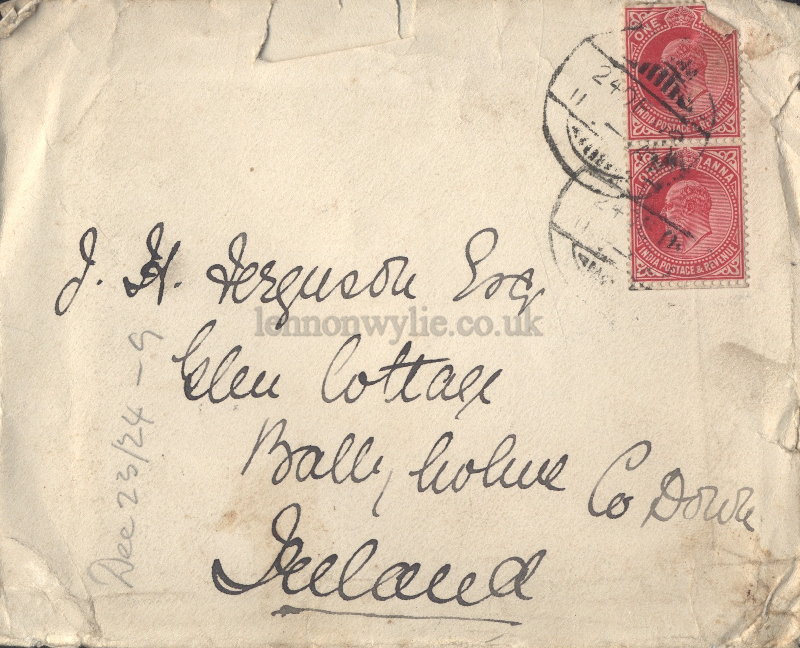 ONE
INDIA POSTAGE & REVENUE
ONE ANNA
INDIA POSTAGE & REVENUE
24
11
24
J. H. Ferguson Esq.
lennonwylie.co.uk
Glen Cottage
Ballyholme Co Down
Ireland
Dec 23/24 - 9